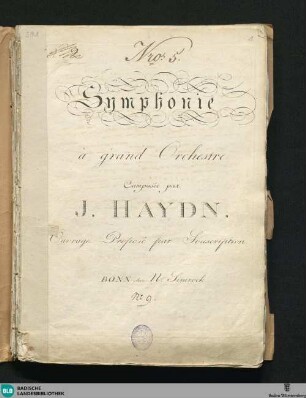 Nro: 5.
Symphonie
à grand Orchestre
Composée par
J. HAYDN.
Ouvrage Proposé par Souscription
BONN chez N. Simrock
No 9.
BLB BADISCHE
LANDESBIBLIOTHEK